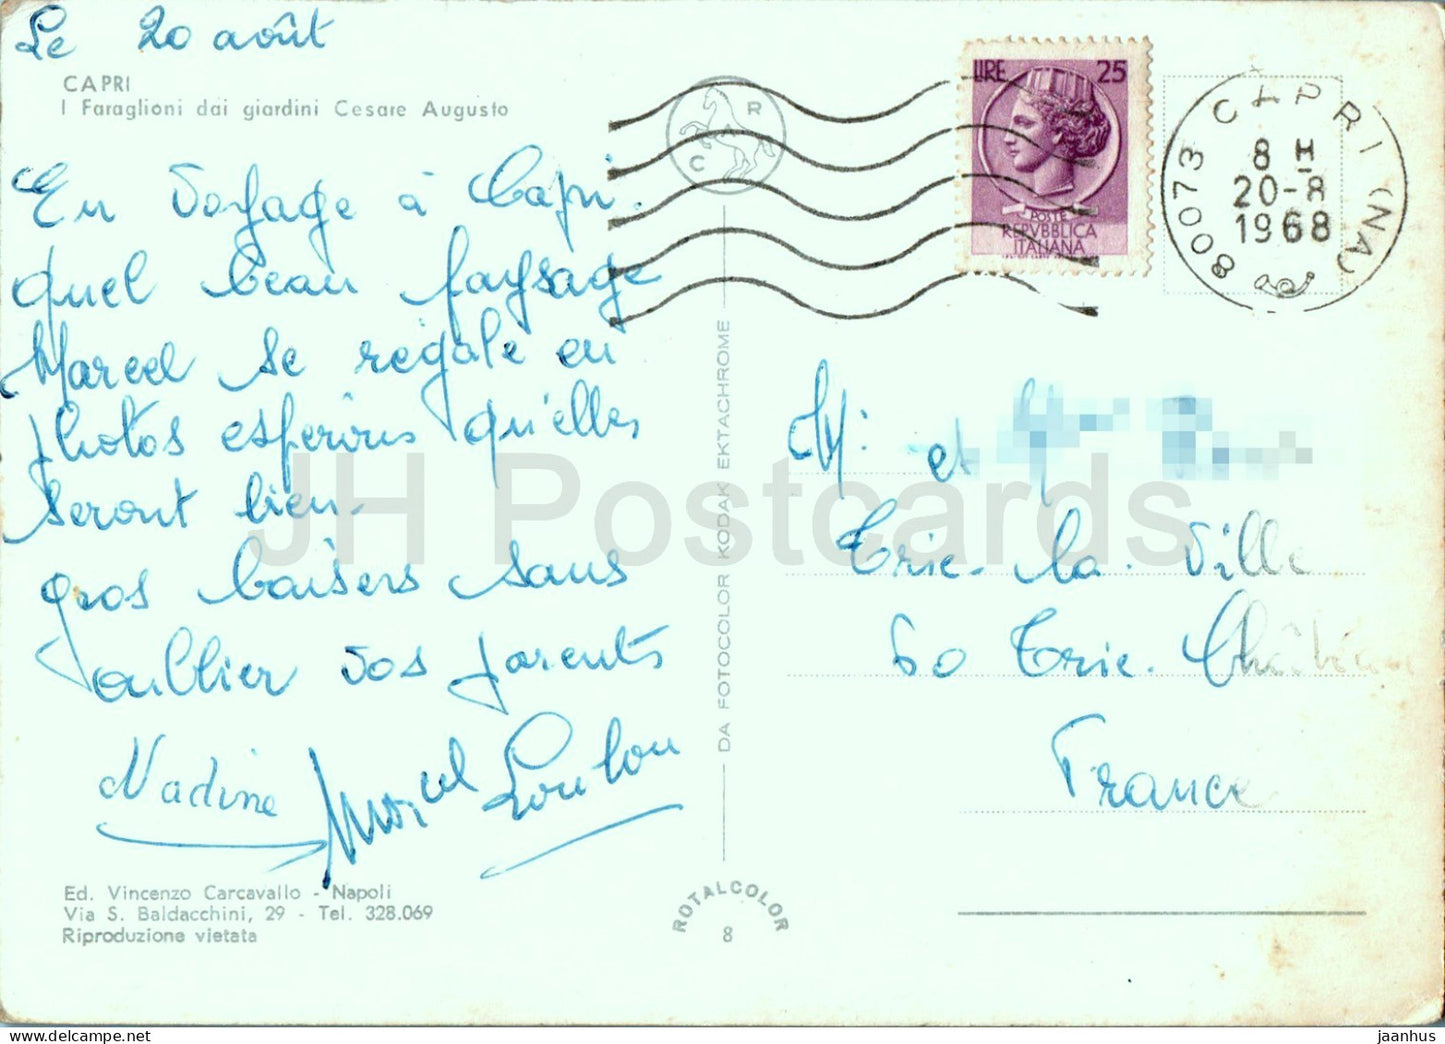 Le 20 août
CAPRI
I Faraglioni dai giardini Cesare Augusto
En voyage à Capri.
quel beau paysage
Marcel se régale en
photos espérons qu'elles
seront bien.
gros baisers sans
oublier vos parents
Nadine Marcel Loulou
Ed. Vincenzo Carcavallo - Napoli
Via S. Baldacchini, 29 - Tel. 328.069
Riproduzione vietata
R
C
DA FOTOCOLOR KODAK EKTACHROME
ROTALCOLOR
8
LIRE 25
POSTE
REPVBBLICA
ITALIANA
80073 CAPRI (NA)
8 H
20-8
1968
M: et
Trie-la-Ville
60 Trie-Château
France
JH Postcards
www.delcampe.net
jaanhus